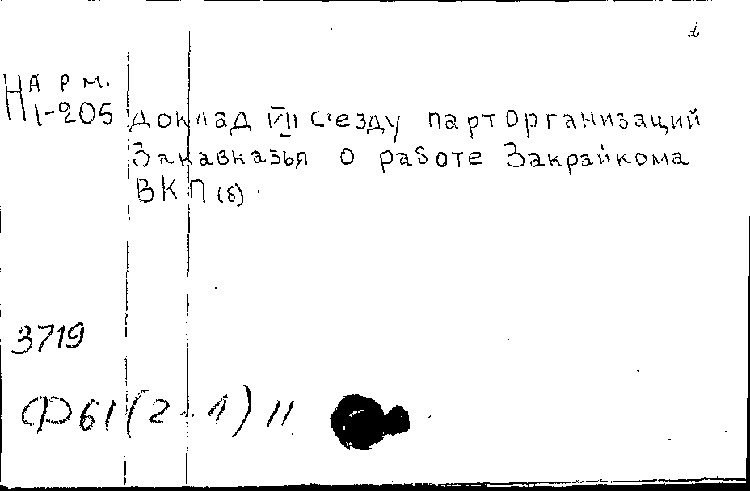 Арм.
П1-205
Доклад VII с'езду парторганизаций
Закавказья о работе Закрайкома
ВКП(б).
3719
Ф61(2-1)11